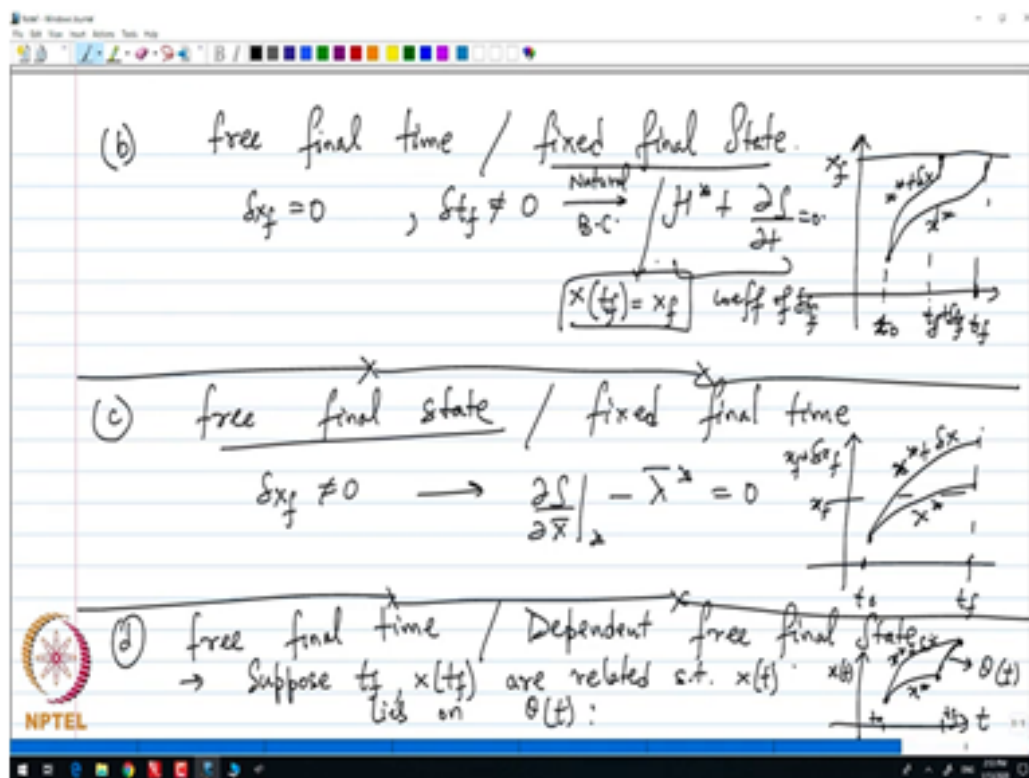 File Edit View Insert Actions Tools Help
(b) free final time / fixed final State.
δx_f = 0 , δt_f ≠ 0 Natural B.C. → H* + ∂S/∂t = 0
x(t_f) = x_f coeff of δt_f
x_f
x* + δx
x*
t_0 t_f+δt_f t_f
(c) free final state / fixed final time
δx_f ≠ 0 → ∂S/∂x̄ |_* − λ̄* = 0
x_f+δx_f
x* + δx
x_f
x*
t_0 t_f
(d) free final time / Dependent free final State
→ Suppose t_f, x(t_f) are related s.t. x(t)
lies on θ(t) :
x(t)
x*
θ(t)
t_0 t
NPTEL